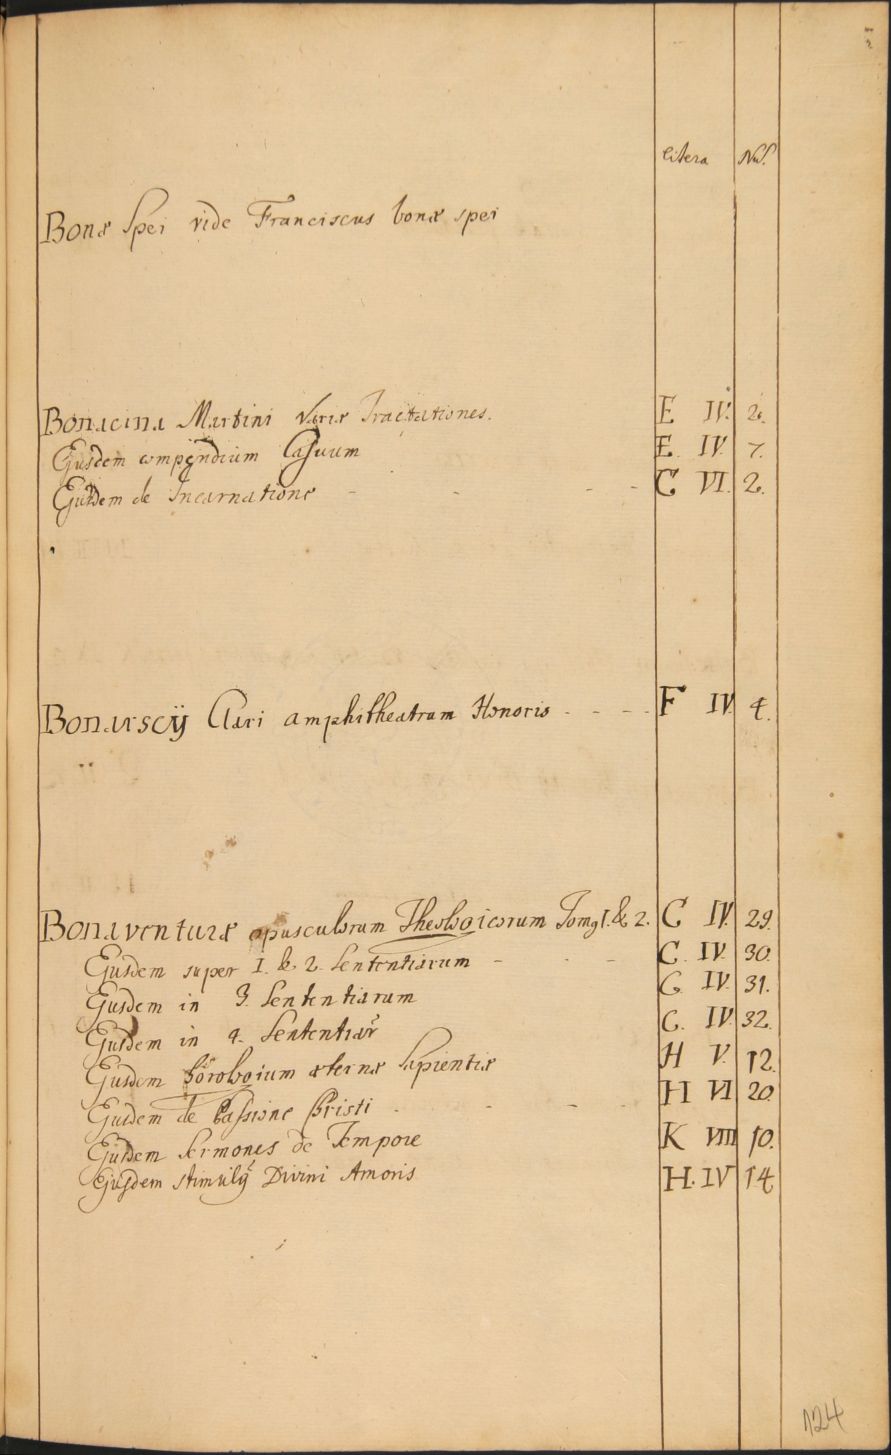 litera Nus.
Bonæ Spei vide Franciscus bonæ spei
Bonacina Martini Variæ Tractationes. E IV. 2.
Ejusdem compendium Casuum E. IV. 7.
Ejusdem de Incarnatione - - - - C VI. 2.
Bonarscÿ Clari amphitheatrum Honoris - - - - F IV. 4.
Bonaventuræ opusculorum Theologicorum Tom9 1. & 2. C IV. 29.
Ejusdem super I. & 2. Sententiarum - - - C. IV. 30.
Ejusdem in 3. Sententiarum C IV. 31.
Ejusdem in 4. Sententiar C. IV. 32.
Ejusdem horologium æternæ Sapientiæ H V. 12.
Ejusdem de Passione Christi - - - H VI 20.
Ejusdem Sermones de Tempore K VIII 10.
Ejusdem stimulÿ Divini Amoris H. IV 14
124